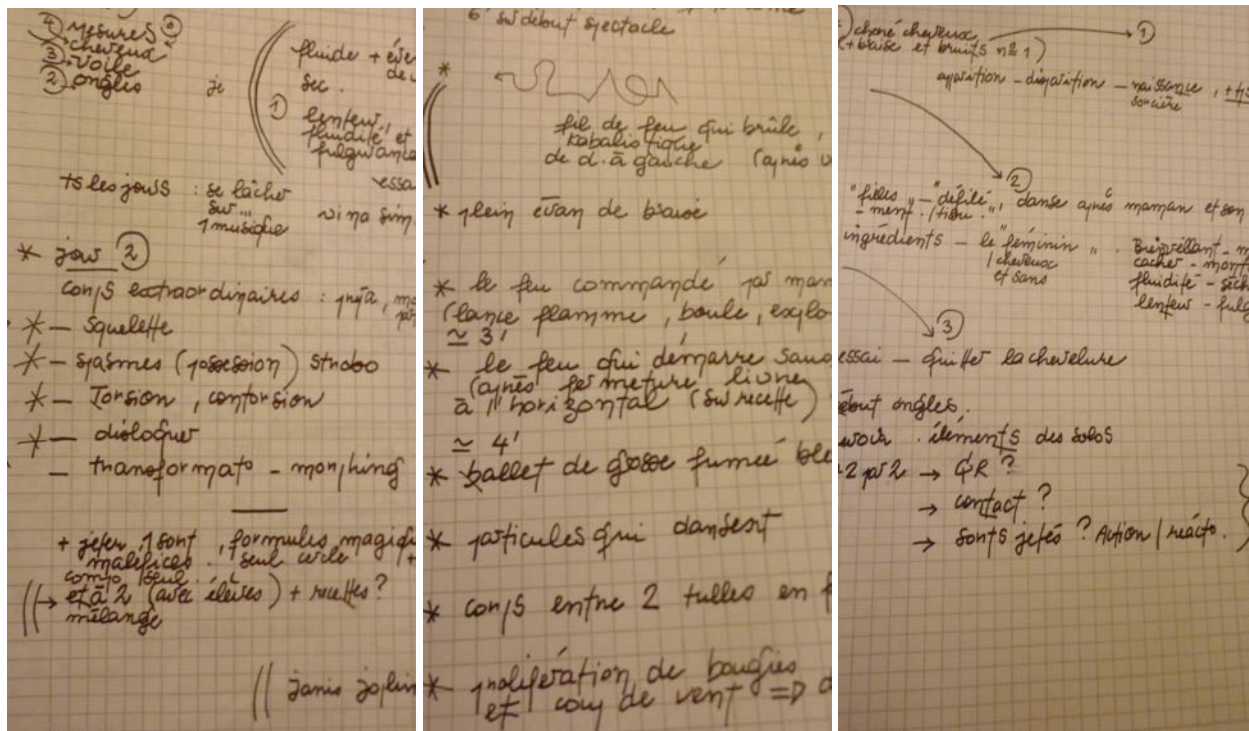 ④ mesures
cheveux
③ voile
② ongles
je
①
fluide +
sec.
lenteur,
fluidité et
fulgurance
essai
ts les jours : se lâcher
sur...
1 musique
* jour ②
corps extraordinaires :
* - squelette
* - spasmes (possession) strobo
* - Torsion, contorsion
* - dialoguer
- transformato - morphing
+ jeter 1 sort, formules magiq
maléfices. seul cercle
compo seul.
→ et à 2 (avec élèves) + recettes ?
mélange
janis joplin
6' sur début spectacle
*
fil de feu qui brûle,
Kabalistique
de d. à gauche (après
* plein écran de braise
* le feu commandé par mam
(lance flamme, boule, explo
≃ 3'
* le feu qui démarre sans
(après fermeture livre
à l'horizontal (sur recette)
≃ 4'
* ballet de grosse fumée ble
* particules qui dansent
* corps entre 2 tulles en f
* prolifération de bougies
et coup de vent =>
choré cheveux
(+ braise et bruits n° 1)
①
apparition - disparition - naissance,
sorcière
②
"filles" - "défilé", danse après maman et son
- ment. / tissu.",
ingrédients - le "féminin". Bienveillant - m
/ cheveux
et sans
cacher - mont
fluidité - sèch
lenteur - fulg
③
essai - quitter la chevelure
début ongles.
revoir. éléments des solos
2 par 2 → QR ?
→ contact ?
→ sorts jetés ? Action / réacto.